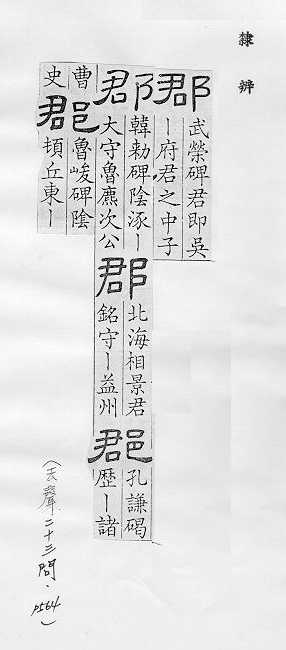 隸辨
郡
武榮碑君即吳
｜府君之中子
郡
韓勑碑陰涿｜
大守魯麃次公
郡
北海相景君
銘守｜益州
郡
孔謙碣
歷｜諸
曹
史
郡
魯峻碑陰
頓丘東｜
(去聲二十三問·P564)